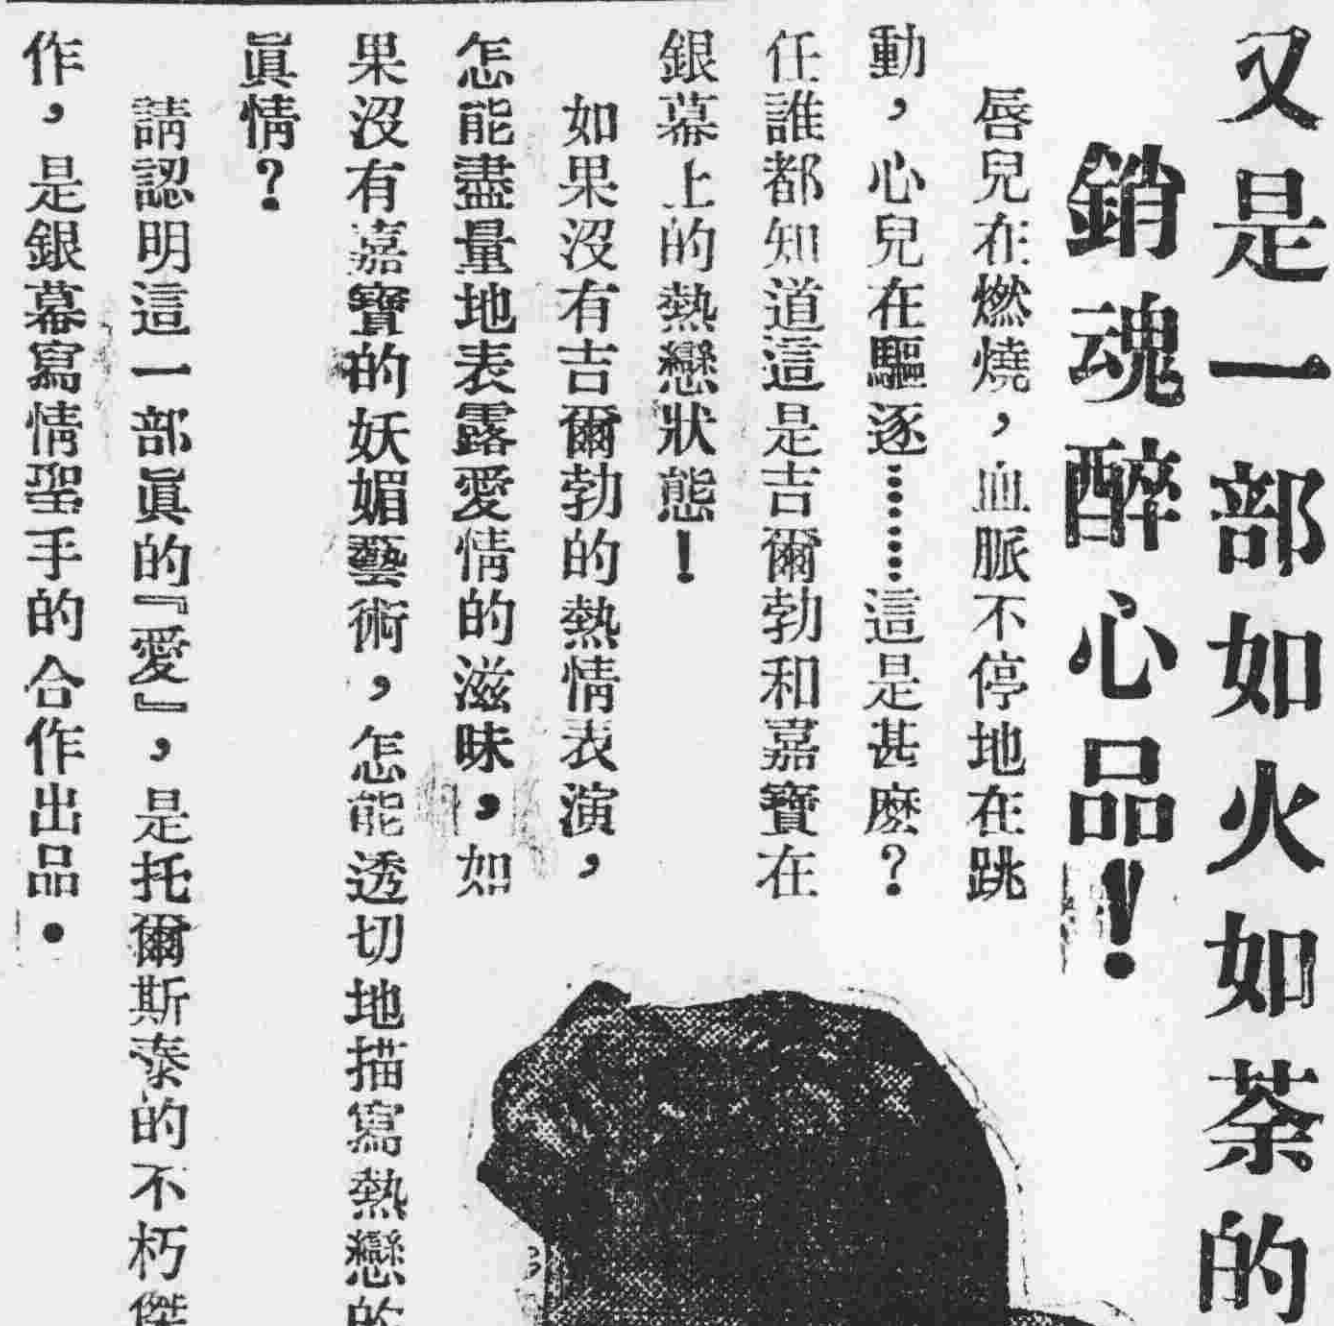 又是一部如火如荼的
銷魂醉心品！
唇兒在燃燒，血脈不停地在跳
動，心兒在驅逐……這是甚麽？
任誰都知道這是吉爾勃和嘉寶在
銀幕上的熱戀狀態！
如果沒有吉爾勃的熱情表演，
怎能盡量地表露愛情的滋味，如
果沒有嘉寶的妖媚藝術，怎能透切地描寫熱戀的
眞情？
請認明這一部眞的『愛』，是托爾斯泰的不朽傑
作，是銀幕寫情聖手的合作出品．